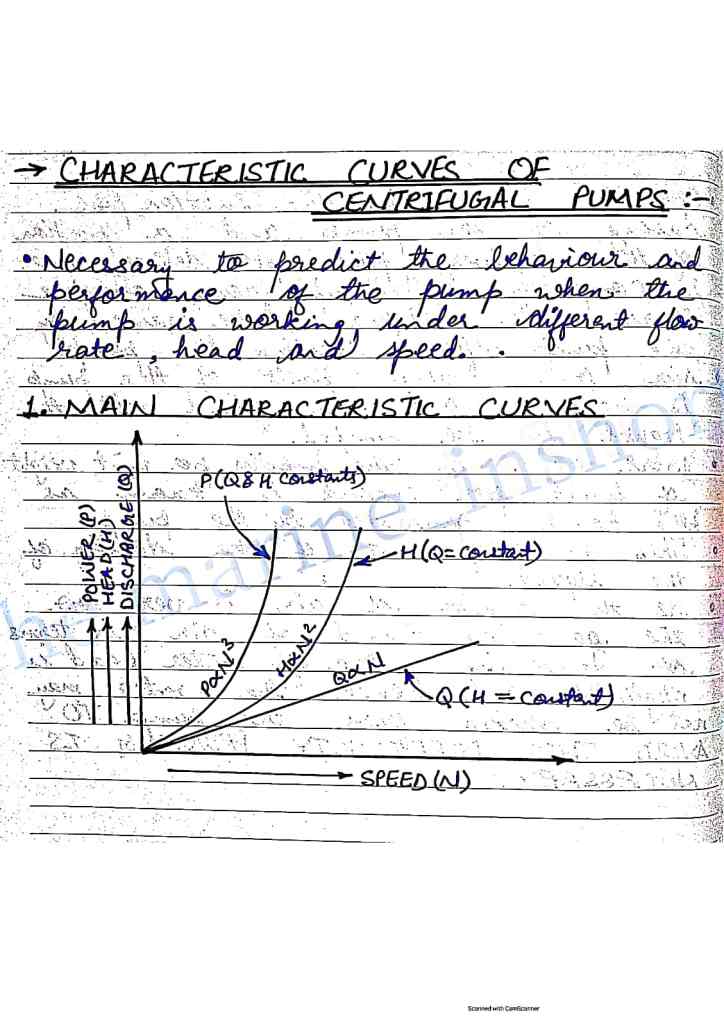 → CHARACTERISTIC CURVES OF
CENTRIFUGAL PUMPS :-
• Necessary to predict the behaviour and
performance of the pump when the
pump is working under different flow
rate, head and speed.
1. MAIN CHARACTERISTIC CURVES
P(Q & H constants)
H(Q=constant)
POWER (P)
HEAD (H)
DISCHARGE (Q)
P∝N³
H∝N²
Q∝N
Q (H = constant)
→ SPEED (N)
marine_inshort
Scanned with CamScanner